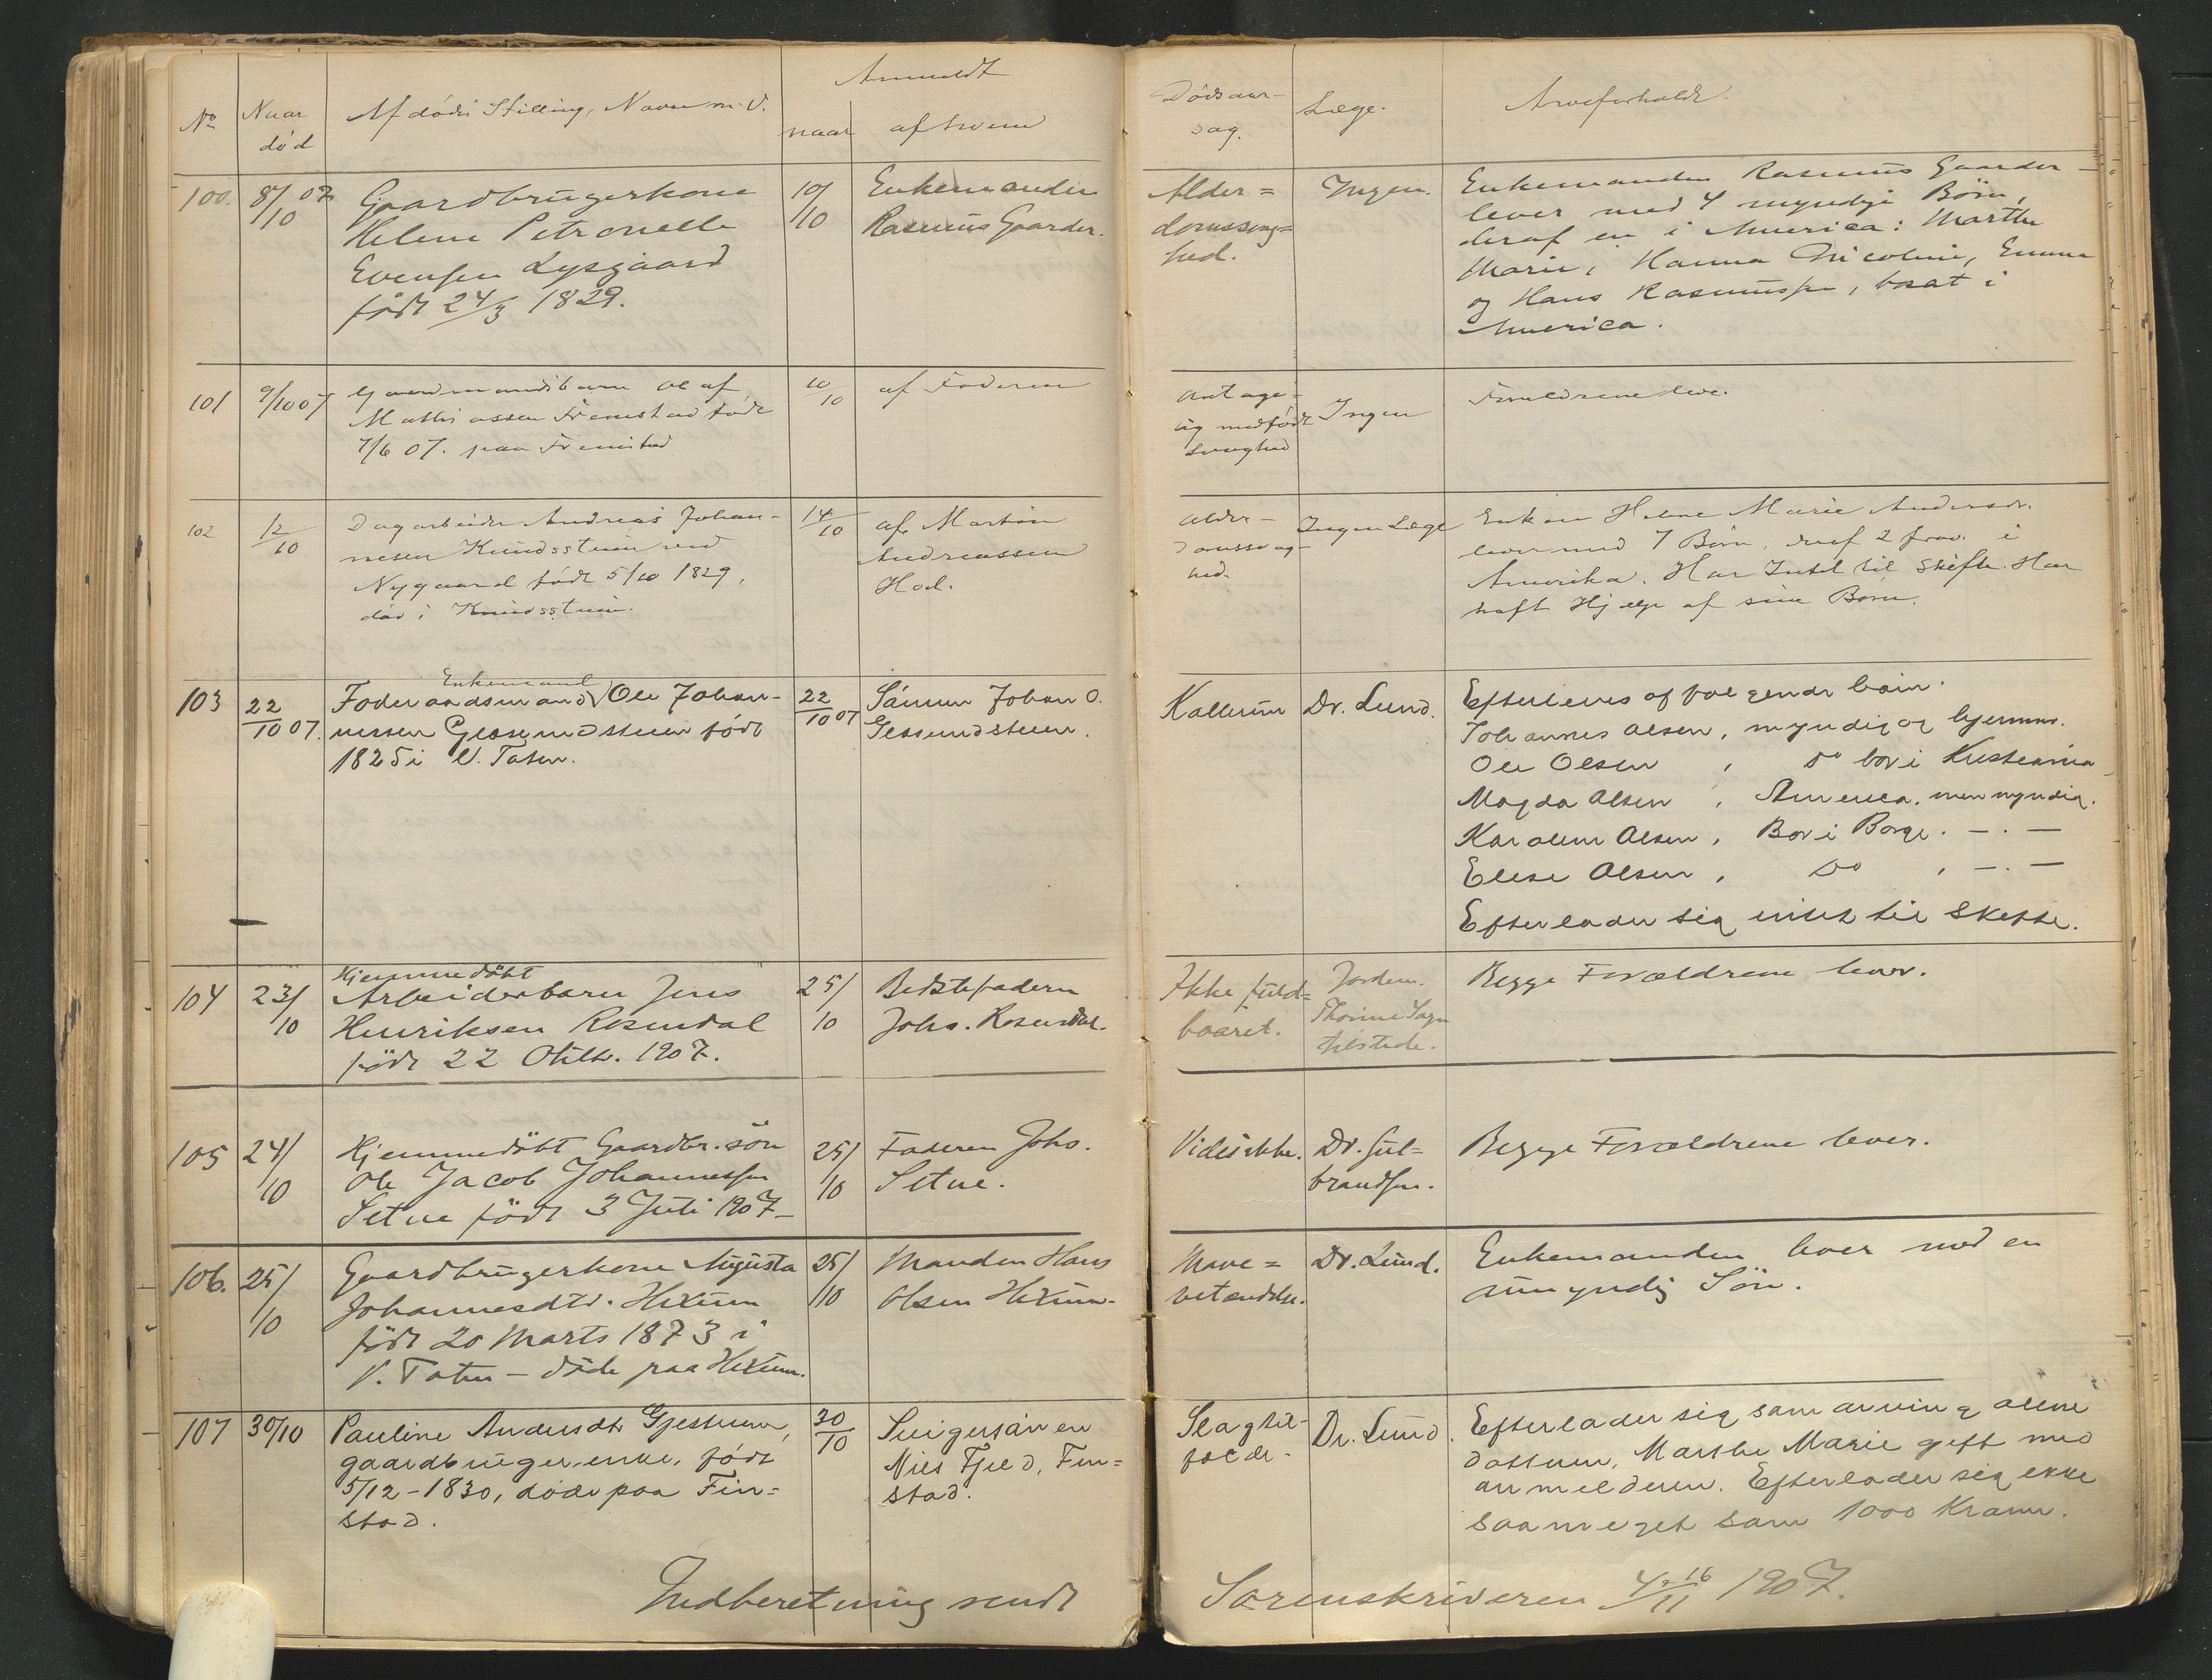 Anmeldt
No
Naar
død
Afdødes Stilling, Navn m. V.
naar
af hvem
Dødsaar-
sag.
Læge.
Arveforholde.
100.
8/10 07
Gaardbrugerkone
Helene Petronelle
Evensen Lysgaard
født 24/3 1829.
10/10
Enkemanden
Rasmus Gaarder.
Alder=
domssvag=
hed.
Ingen.
Enkemanden Rasmus Gaarder
lever med 4 myndige Børn,
deraf en i America: Marthe
Marie, Hanna Nicoline, Emma
og Hans Rasmussen, bosat i
America.
101
9/10 07
Gaardmandsbarn Olaf
Mathiassen Fremstad født
7/6 07. paa Fremstad
10/10
af Faderen
antage-
lig medfødt
svaghed
Ingen
Forældrene leve.
102
12/10
Dagarbeider Andreas Johan-
nesen Kundsstuen ved
Nygaard født 5/10 1829,
død i Kundsstuen.
14/10
af Martin
Andreassen
Hol.
alder-
domssvag-
hed.
Ingen Læge
Enken Helene Marie Andersdr.
lever med 7 Børn, deraf 2 frav. i
Amerika. Har Intet til Skifte. Har
haft Hjælp af sine Børn.
103
22/10 07.
Enkemand
Foderaadsmand Ole Johan-
nessen Gissundstuen født
1825 i V. Toten.
22/10 07
Sønnen Johan O.
Gissundstuen.
Kallerun
Dr. Lund.
Efterleves af følgende børn.
Johannes Olsen, myndig og hjemme.
Ole Olsen, Do bor i Kristiania
Magda Olsen, America, men myndig.
Karoline Olsen, Bor i Borge. — . —
Elise Olsen, Do , — . —
Efterlader sig intet til Skifte.
104
23/10
Hjemmedöbt
Arbeiderbarn Jens
Henriksen Rosendal
född 22 Oktbr. 1907.
25/10
Bedstefaderen
Johs. Rosendal.
Ikke fuld=
baaret.
Jordm.
tilstede.
Begge Forældrene lever.
105
24/10
Hjemmedöbt Gaardbr. sön
Ole Jacob Johannessen
Setne född 3 Juli 1907—
25/10
Faderen Johs.
Setne.
Vides ikke.
Dr. Gul=
brandsen.
Begge Forældrene lever.
106.
25/10
Gaardbrugerkone Augusta
Johannesdtr. Hexum
född 20 Marts 1873 i
V. Toten — döde paa Hexum.
25/10
Manden Hans
Olsen Hexum.
Mave=
betændelse.
Dr. Lund.
Enkemanden lever med en
umyndig Sön.
107
30/10
Pauline Andersdtr Gjestrum,
gaardbrugerenke, født
5/12-1830, døde paa Fin=
stad.
30/10
Svigersønen
Nils Fjeld, Fin=
stad.
Slagtil-
fælde.
Dr. Lund.
Efterlader sig som arving alene
datteren, Marthe Marie gift med
anmelderen. Efterlader sig ikke
saameget som 1000 Kroner.
Indberetning sendt
Sorenskriveren 16/11 1907.